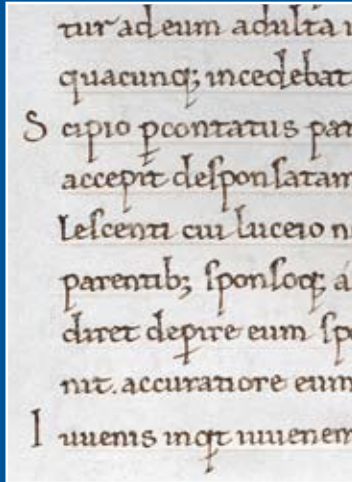 tur ad eum adulta
quacunq; incedebat
S cipio ꝑcontatus pat
accepit desponsatam
lescenti cui luceio n
parentib; sponsoq; a
diret deꝑire eum spo
nit. accuratiore eum
I uuenis inqꝫt iuuenem